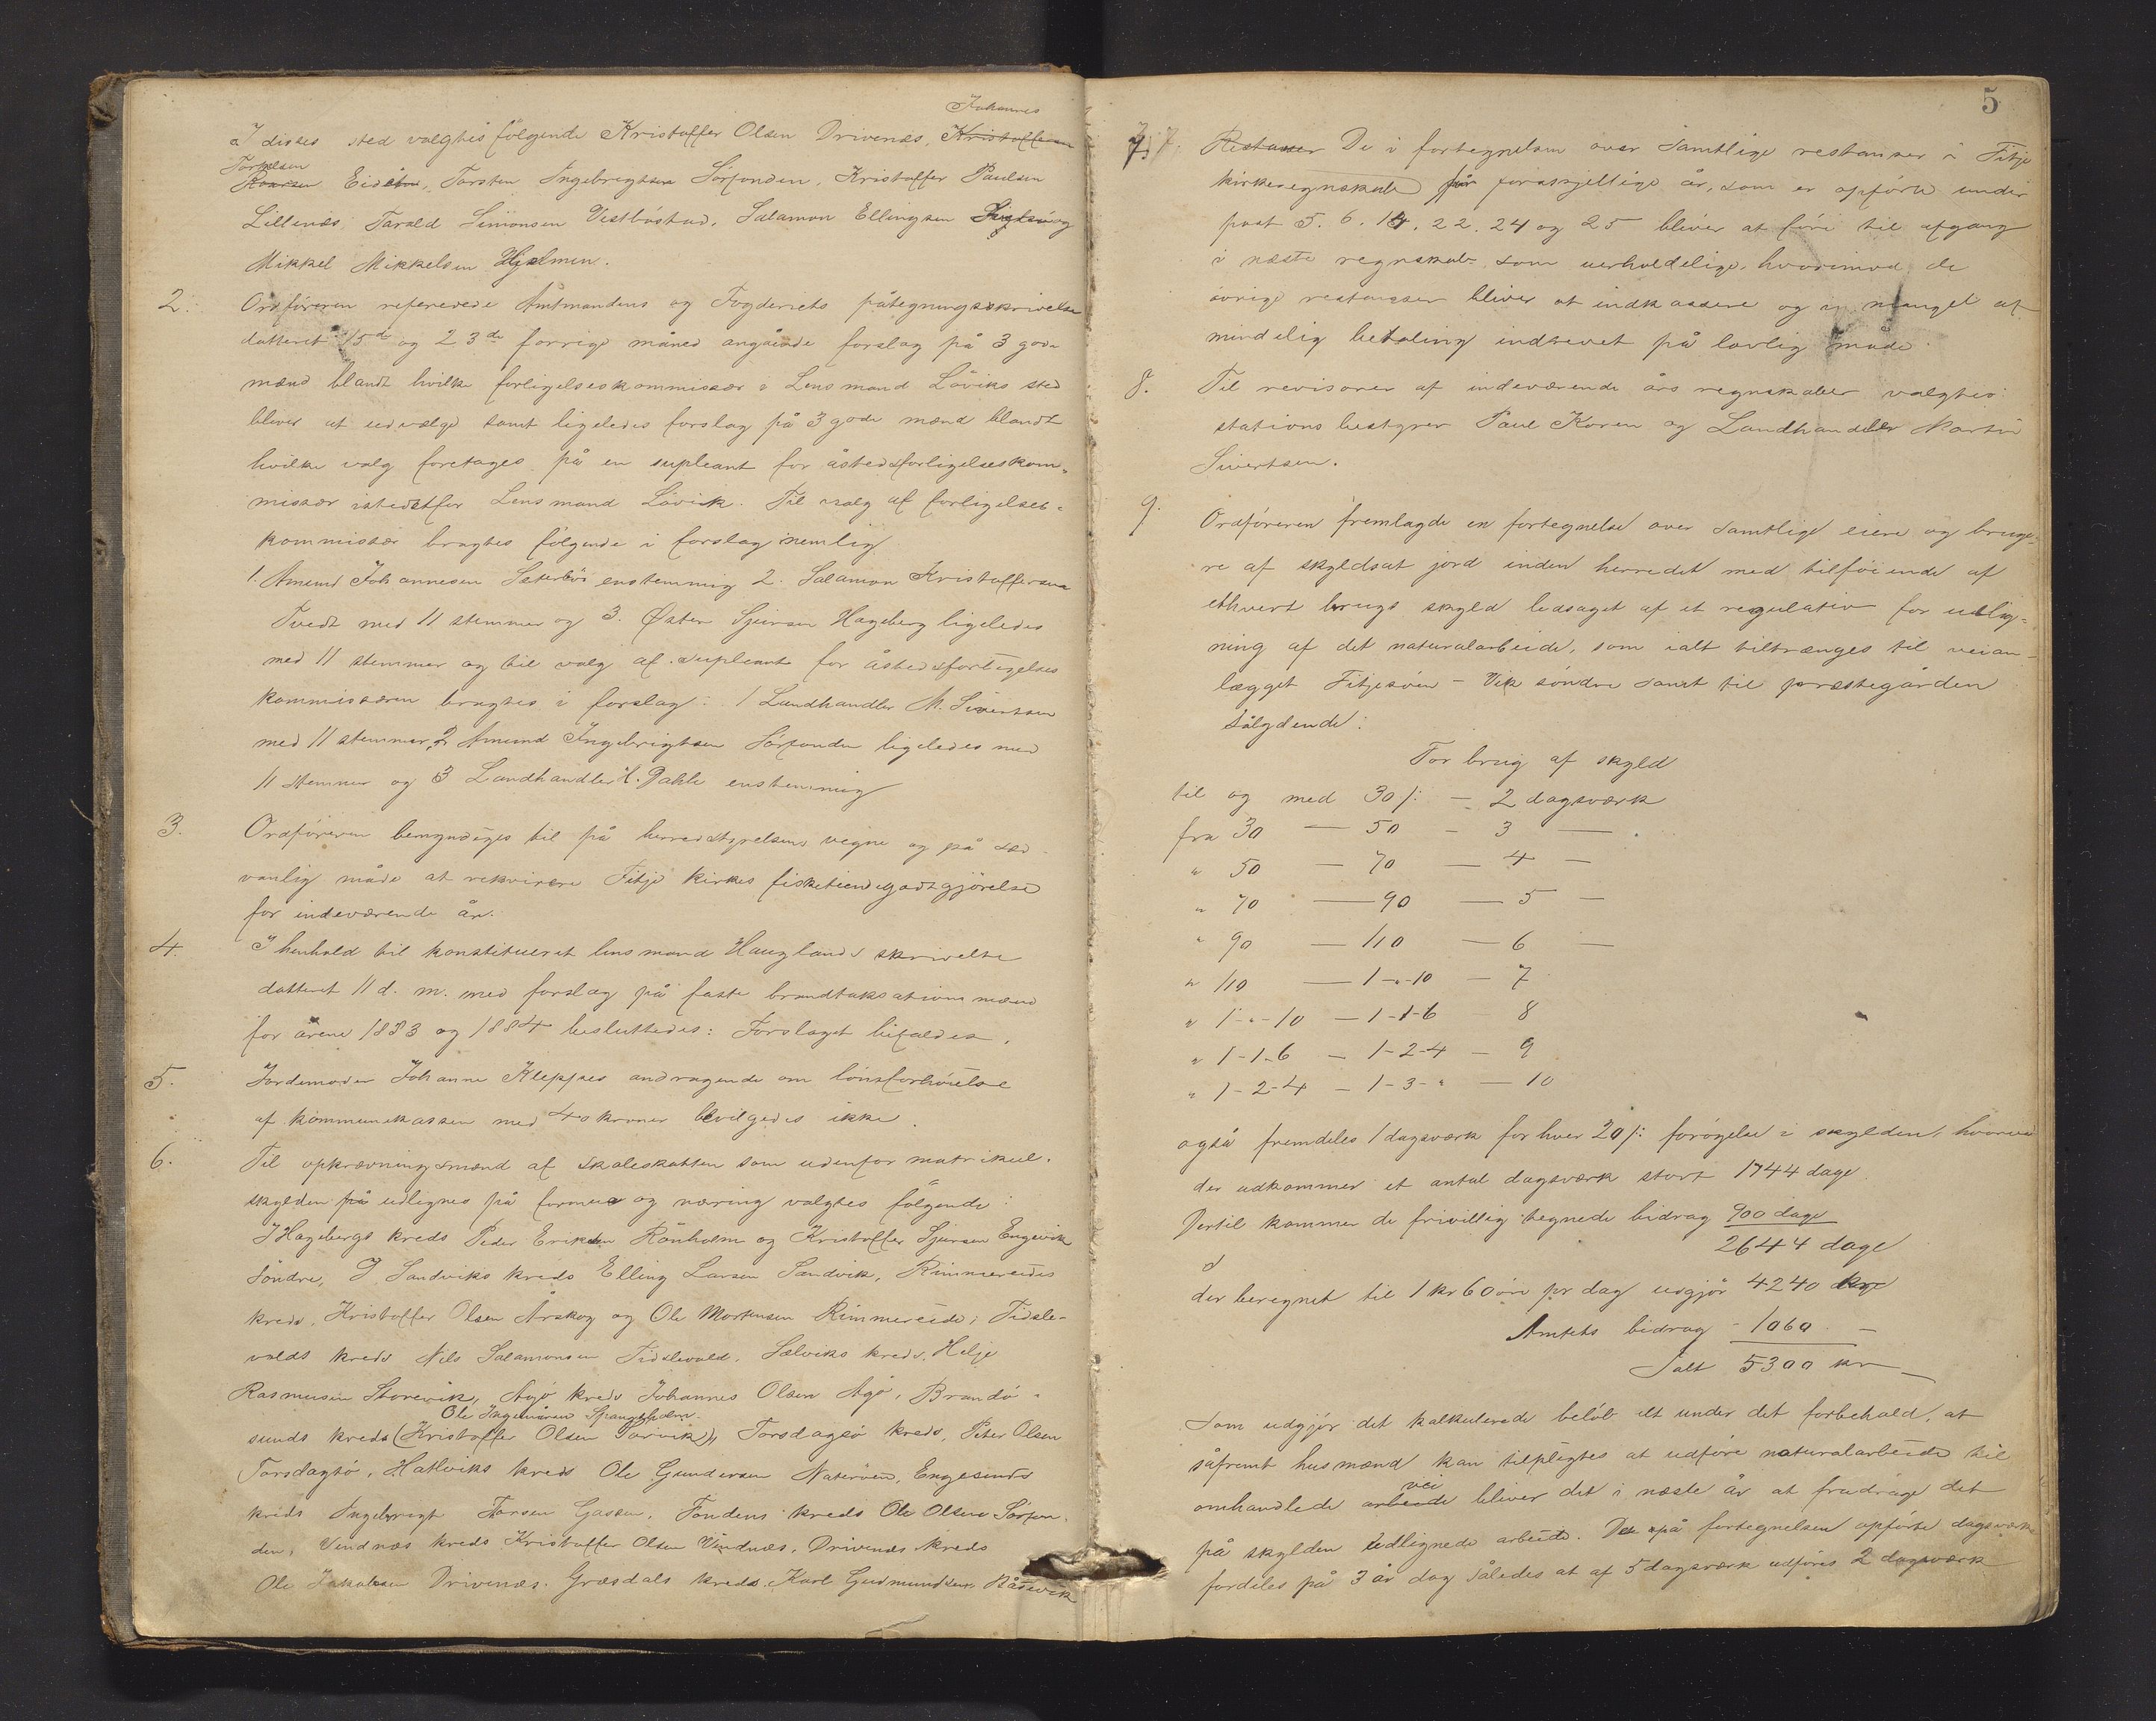 Johannes
I disses sted valgtes følgende Kristoffer Olsen Drivenæs, Kristoffersen
Torkelsen
Eide, Torsten Ingebrigtsen Sørfonden, Kristoffer Paulsen
Lillenæs, Tarald Simonsen Vestbøstad, Salamon Ellingsen og
Mikkel Mikkelsen Hjelmen.
2. Ordføreren refererede Amtmandens og Fogderiets påtegningsskrivelse
datteret 15de og 23de forrige måned angående forslag på 3 gode
mænd blandt hvilke forligelseskommissær i Lensmand Løviks sted
bliver at udvælge samt ligeledes forslag på 3 gode mænd blandt
hvilke valg foretages på en supleant for åstedsforligelseskom-
missær istedetfor Lensmand Løvik. Til valg af forligelses-
kommissær bragtes følgende i forslag nemlig
1. Amund Johannesen Sæterbø enstemmig 2. Salamon Kristoffersen
Tvedt med 11 stemmer og 3. Østen Sjursen Hageberg ligeledes
med 11 stemmer og til valg af supleant for åstedsforligelses
kommissæren bragtes i forslag: 1 Landhandler M. Sivertsen
med 11 stemmer, 2 Amund Ingebrigtsen Sørfonden ligeledes med
11 stemmer og 3 Landhandler H. Dahle enstemmig
3. Ordføreren bemyndiges til på herredstyrelsens vegne og på sæd-
vanlig måde at rekvirere Fitje kirkes fisketiendegodtgjørelse
for indeværende år.
4. I henhold til konstitueret lensmand Hauglands skrivelse
datteret 11 d. m. med forslag på faste brandtaksationsmænd
for årene 1883 og 1884 besluttedes: Forslaget bifaldes.
5. Jordemoder Johanne Kleppes andragende om lønsforhøielse
af kommunekassen med 40 kroner bevilgedes ikke.
6. Til opkrævningsmænd af skoleskatten som udenfor matrikul-
skylden på udlignes på formue og næring valgtes følgende:
I Hagebergs kreds Peder Eriksen Rønholm og Kristoffer Sjursen Engevik
søndre, I Sandviks kreds Elling Larsen Sandvik, Rimmereides
kreds, Kristoffer Olsen Årskog og Ole Mortensen Rimmereide; Tidsle-
volds kreds Nils Salamonsen Tidslevold, Sælviks kreds, Helje
Rasmusen Storevik, Agø kreds Johannes Olsen Agø, Brandø-
Ole Ingemåren Spangholm
sunds kreds (Kristoffer Olsen Torvik), Torsdagsø kreds, Peter Olsen
Torsdagsø, Hatleviks kreds Ole Gundersen Naterøen, Engesunds
kreds Ingebrigt Larsen Gaasen, Fondens kreds Ole Olsen Sørfon-
den, Vindnæs kreds Kristoffer Olsen Vindnæs, Drivenæs kreds
Ole Jakobsen Drivenæs. Græsdals kreds Karl Gudmundsen Båsevik
5
7. 7. Restanser De i fortegnelsen over samtlige restanser i Fitje
kirkeregnskab for forskjellige år, som er opførte under
post 5. 6. 14. 22. 24 og 25 bliver at føre til afgang
i næste regnskab som uerholdelige, hvorimod de
øvrige restanser bliver at indkassere og i mangel af
mindelig betaling inddrevet på lovlig måde.
8. Til revisorer af indeværende års regnskaber valgtes:
stationsbestyrer Paul Koren og Landhandler Martin
Sivertsen.
9. Ordføreren fremlagde en fortegnelse over samtlige eiere og bruge-
re af skyldsat jord inden herredet med tilføiende af
ethvert brugs skyld ledsaget af et regulativ for udlig-
ning af det naturalarbeide, som ialt tiltrænges til veian-
lægget Fitjesøen - Vik søndre samt til præstegården
sålydende:
For brug af skyld
til og med 30 /: - 2 dagsværk
fra 30 — 50 - 3 —
" 50 — 70 — 4 —
" 70 — 90 — 5 —
" 90 — 110 — 6 —
" 110 — 1-"-10 — 7
" 1-"-10 — 1-1-6 8
" 1-1-6 — 1-2-4 — 9
" 1-2-4 — 1-3-" — 10
også fremdeles 1 dagsværk for hver 20 /: forøgelse i skylden, hvorved
der udkommer et antal dagsværk stort 1744 dage
Dertil kommer de frivillig tegnede bidrag 900 dage
2644 dage
d
der beregnet til 1 kr 60 øre pr dag udgjør 4240 kr
Amtets bidrag - 1060 —
Ialt 5300 kr
Som udgjør det kalkulerede beløb alt under det forbehold, at
såfremt husmænd kan tilpligtes at udføre naturalarbeide til
vei
omhandlede arbeide bliver det i næste år at fradrage det
på skylden udlignede arbeide. De på fortegnelsen opførte dagsværk
fordeles på 3 år dog således at af 5 dagsværk udføres 2 dagsværk